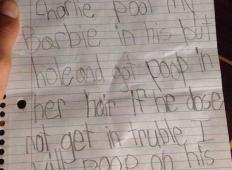 Charlie poot my
Barbie in his but
hole and got poop in
her hair If he dose
not get in truble I
will poop on his